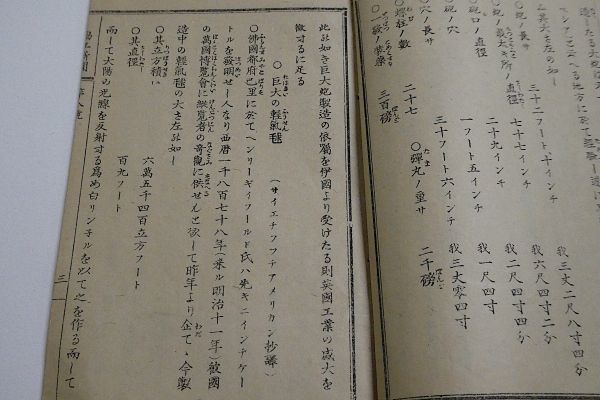 と直徑
其大さ左の如し
ノ長サ 三十二フート、十インチ 我三丈二尺八寸四分
も大なる所ノ直徑 七十七インチ 我六尺四寸二分
砲口ノ直徑 二十九インチ 我二尺四寸四分
砲ノ穴 一フート五インチ 我一尺四寸
穴ノ長サ 三十フート六インチ 我三丈零四寸
螺柱ノ數 二十七 ○彈丸ノ重サ 二千磅
一級ノ装藥 三百磅
此の如き巨大砲製造の依屬を伊國より受けたる則英國工業の盛大を
徵するに足る
○巨大の輕氣毬 (サイエンチフフチアメリカン抄譯)
○佛國都府巴里に於てヘンリーギイフールド氏ハ先キニインチケー
トルを發明せし人なり西曆一千八百七十八年(來ル明治十一年)故國
の萬國博覽會に縱覽者の奇觀に供せんと欲して昨年より企てゝ今製
造中の輕氣毬の大さ左の如し
○其立方積ハ 六萬五千四百立方フート
○其直徑 百九フート
而して太陽の光線を反射する爲め白リンチルを以て之を作る而して
三